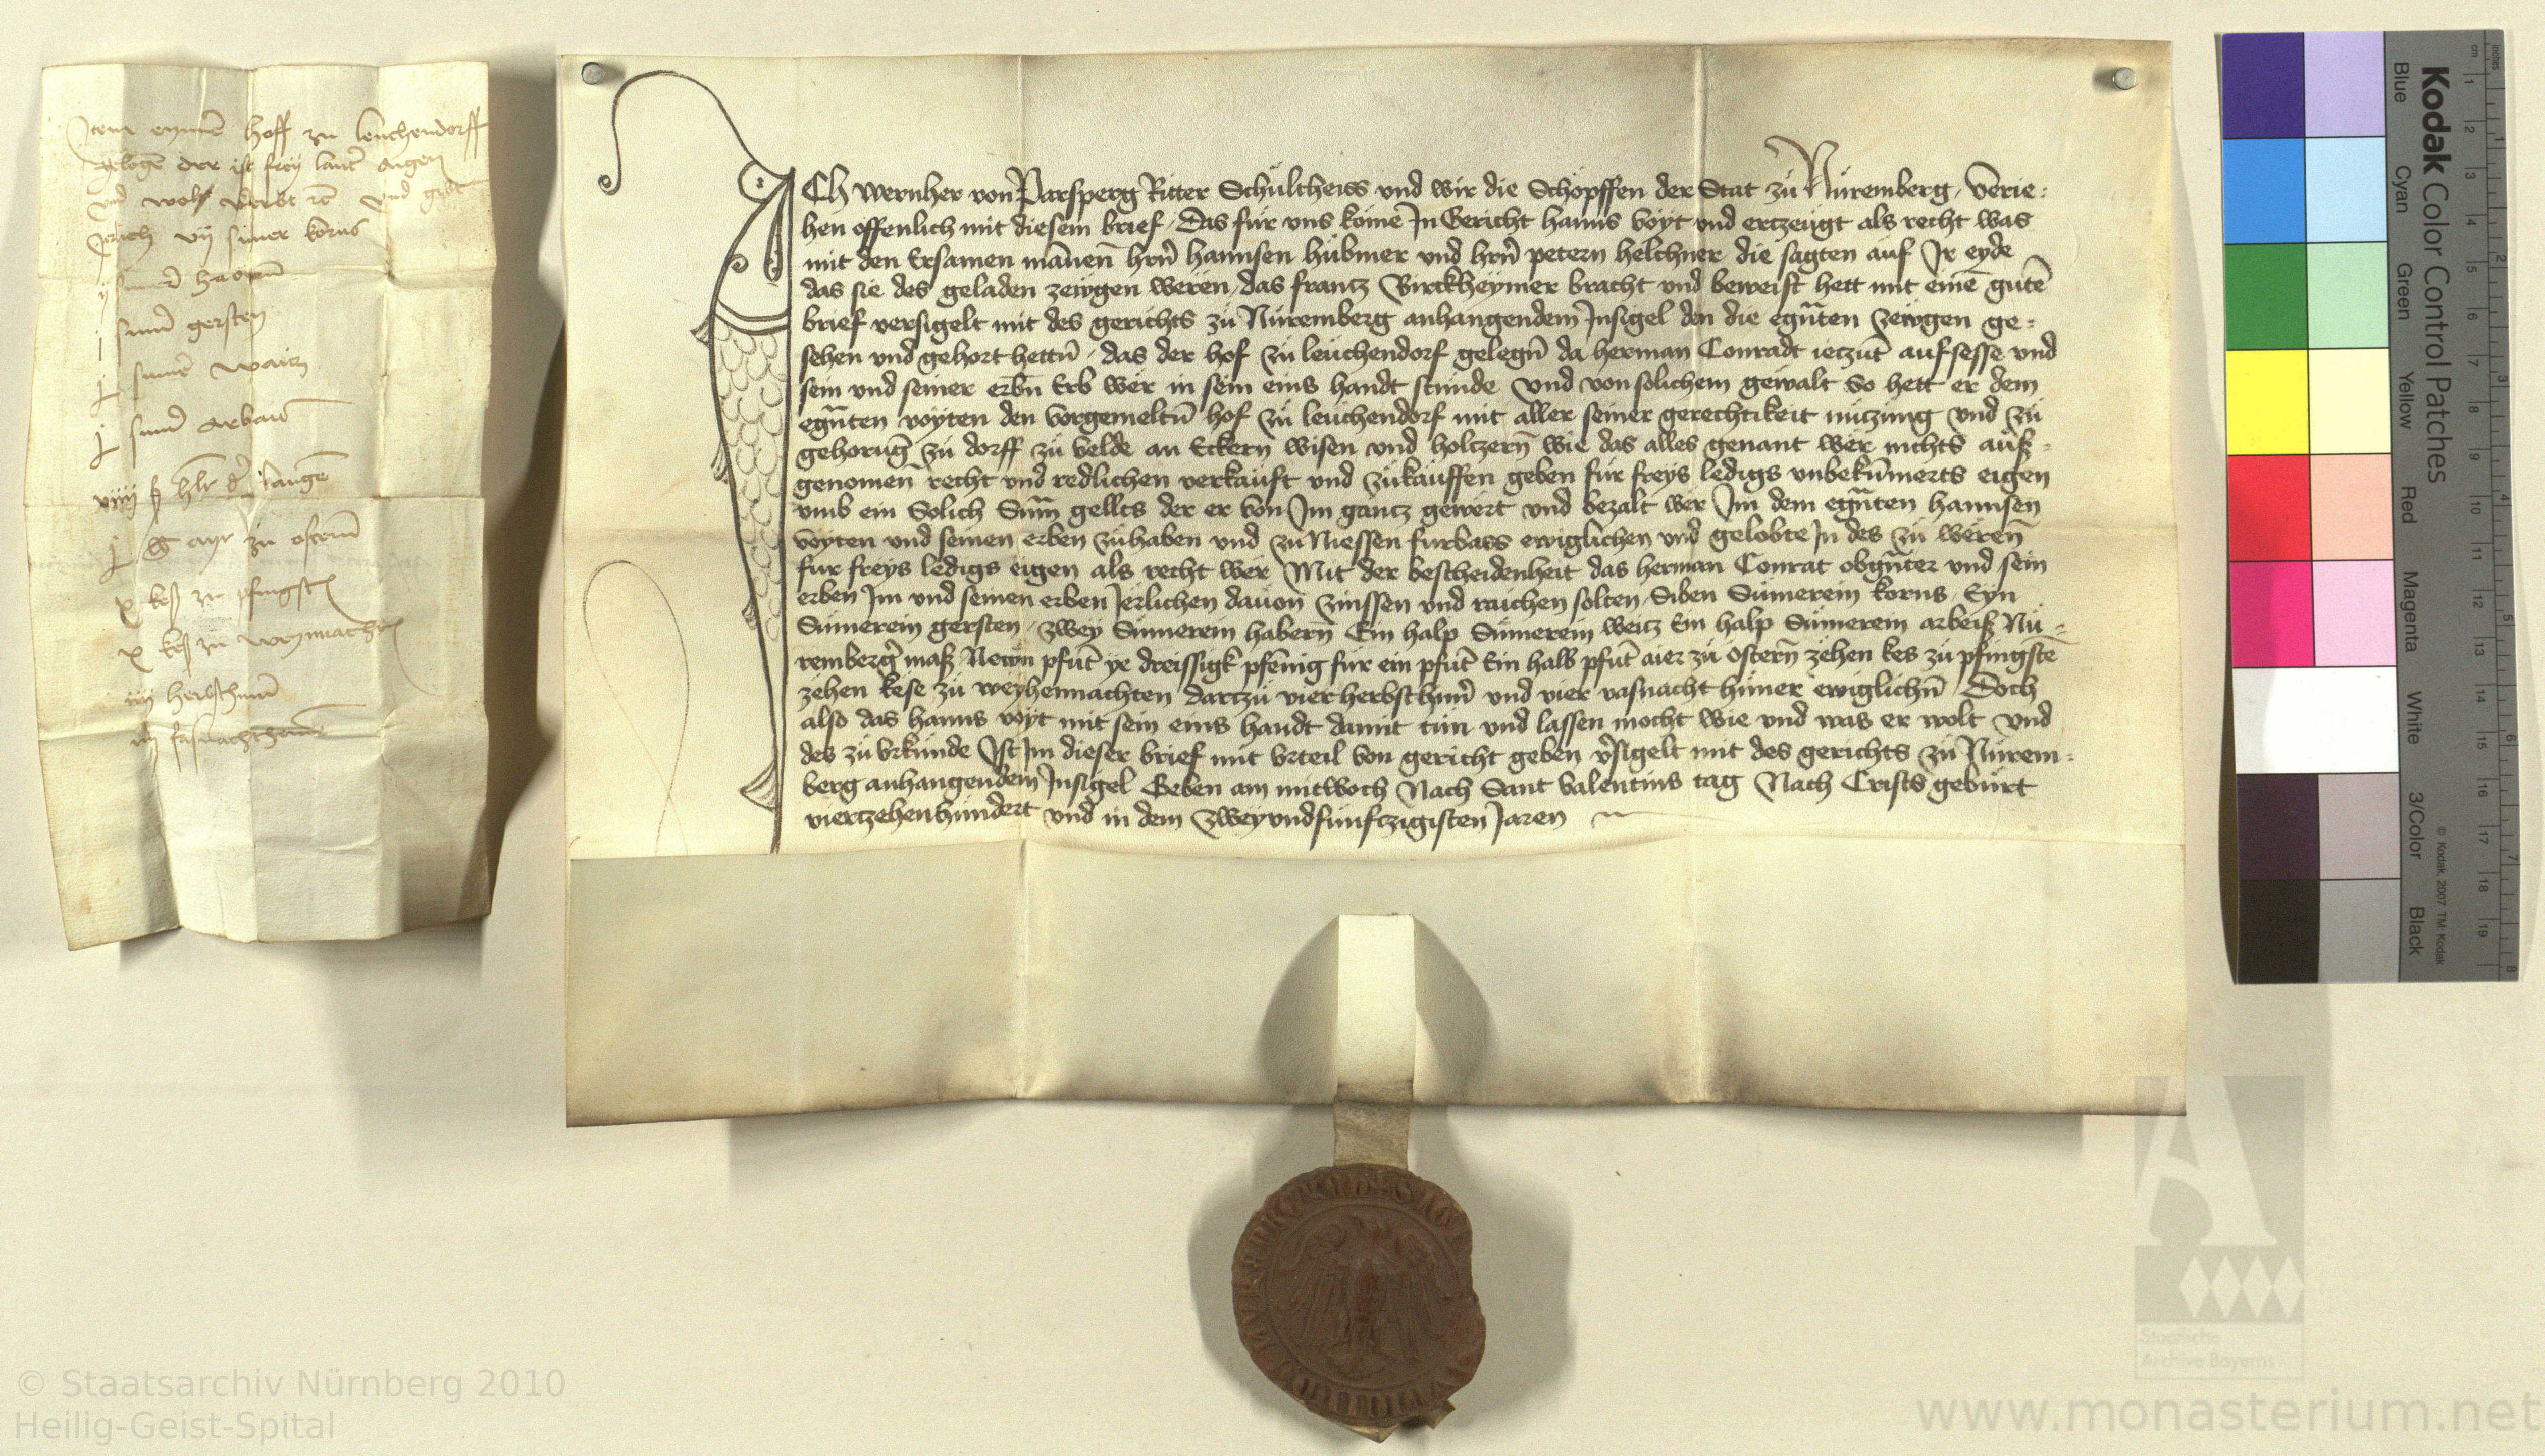 Item eynnen hoff zu leuchendorff
gelegen der ist frey lauter aygen
und woll erbt ist und gibt
Jerlich vij sumer korns
ij sumer habern
j sumer gersten
sumer waicz
sumer arbais
viiij lb hlr der langen
lb ayr zu ostern
x kess zu pfingsten
x kess zu weynnachten
iiij herbsthuner
iiij fasnachthenne
ICh Wernher von Parsperg Ritter Schultheiss und wir die Schöpffen der Stat zu Nüremberg, Verie-
hen offenlich mit diesem brief, Das für uns kome In Gericht hanns Voyt und ertzeugt als recht was
mit den Ersamen mannen hrn hannsen hubmer und hrn petern helchner die sagten auf Ir eyde
das sie des geladen zewgen weren, das frantz Birckheymer bracht und beweist hett mit eine gute
brief versigelt mit des gerichts zu Nüremberg anhangendem Insigel den die egnten zewgen ge-
sehen und gehort hettn, das der hof zu leuchendorf gelegn da herman Conradt ietzut aufsesse und
sein und seiner erbn Erb wer in sein eins handt stunde Und von solichem gewalt So hett er dem
egnten voyten den Vorgemeltn hof zu leuchendorf mit aller seiner gerechtikeit nutzung und zu
gehorug zu dorff zu velde an Eckern wisen und holtzern wie das alles genant wer nichts auß-
genomen recht und redlichen verkauft und zukauffen geben für freys ledigs unbekumerts eigen
umb ein Solich Sum gellts der er von Im gantz gewert und bezalt wer Im dem egnten hannsen
Voyten und seinen erben zuhaben und zu Niessen furbass ewiglichen und gelobte In des zu weren
fur freys ledigs eigen als recht wer Mit der bescheidenheit das herman Conrat obgnter und sein
erben Im und seinen erben Ierlichen dauon zinssen und raichen solten, Siben Sümerein korns, Eyn
Sümerein gersten, zwey Sümerein habern Ein halp Sümerein weitz Ein halp Sümerein arbeiß Nü-
remberger maß Newn pfut ye dreissigk pfennig für ein pfut Ein halb pfut aier zu Ostern zehen kes zu pfingste
zehen kese zu weyhennachten dartzu vier herbsthunr und vier vasnacht huner ewiglichn Doch
also das hanns voyt mit sein eins handt damit tun und lassen mocht wie und was er wolt Und
des zu Urkunde Ist Im dieser brief mit Urteil von gericht geben vsigelt mit des gerichts zu Nürem-
berg anhangendem Insigel Geben am mittwoch Nach Sant Valentins tag Nach Crists geburt
viertzehenhundert und in dem zweyundfunftzigisten Jaren
Kodak Color Control Patches
Blue Cyan Green Yellow Red Magenta White 3/Color Black
© Kodak, 2007 TM: Kodak
cm 1 2 3 4 5 6 7 8 9 10 11 12 13 14 15 16 17 18 19
inches 1 2 3 4 5 6 7 8
Staatliche
Archive Bayerns
© Staatsarchiv Nürnberg 2010
Heilig-Geist-Spital
www.monasterium.net